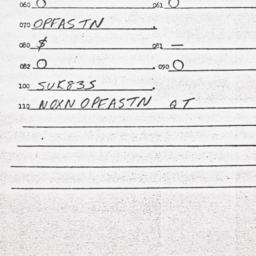 060 O 061 O
070 OPFASTN .
080 $ 081 —
082 O . 090 O
100 SUK83S .
110 NOXN OPFASTN QT